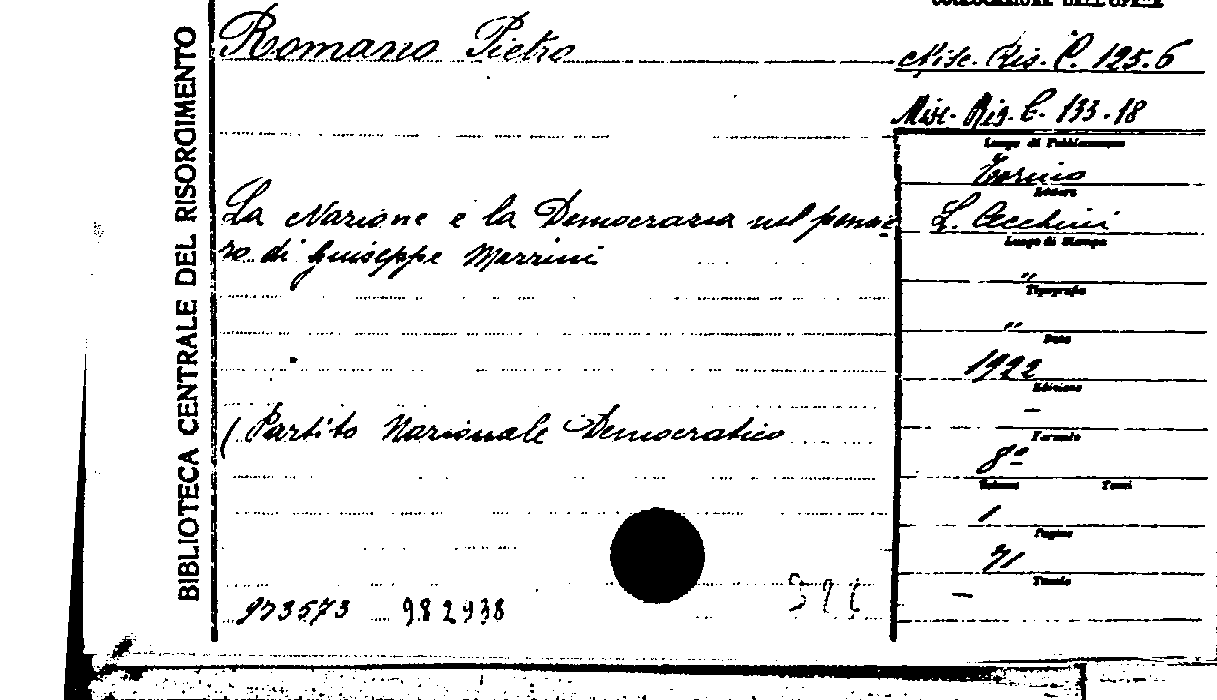 COLLOCAZIONE DELL'OPERA
BIBLIOTECA CENTRALE DEL RISORGIMENTO
Romano Pietro
Misc. Ris. C. 125.6
Misc. Ris. C. 133.18
Luogo di Pubblicazione
Torino
Editore
La Nazione e la Democrazia nel pensie
L. Cecchini
ro di Giuseppe Mazzini
Luogo di Stampa
"
Tipografia
"
Data
1922
Edizione
–
(Partito Nazionale Democratico
Formato
8º
Volumi Tomi
1
Pagine
71
Tavole
–
973573 982938